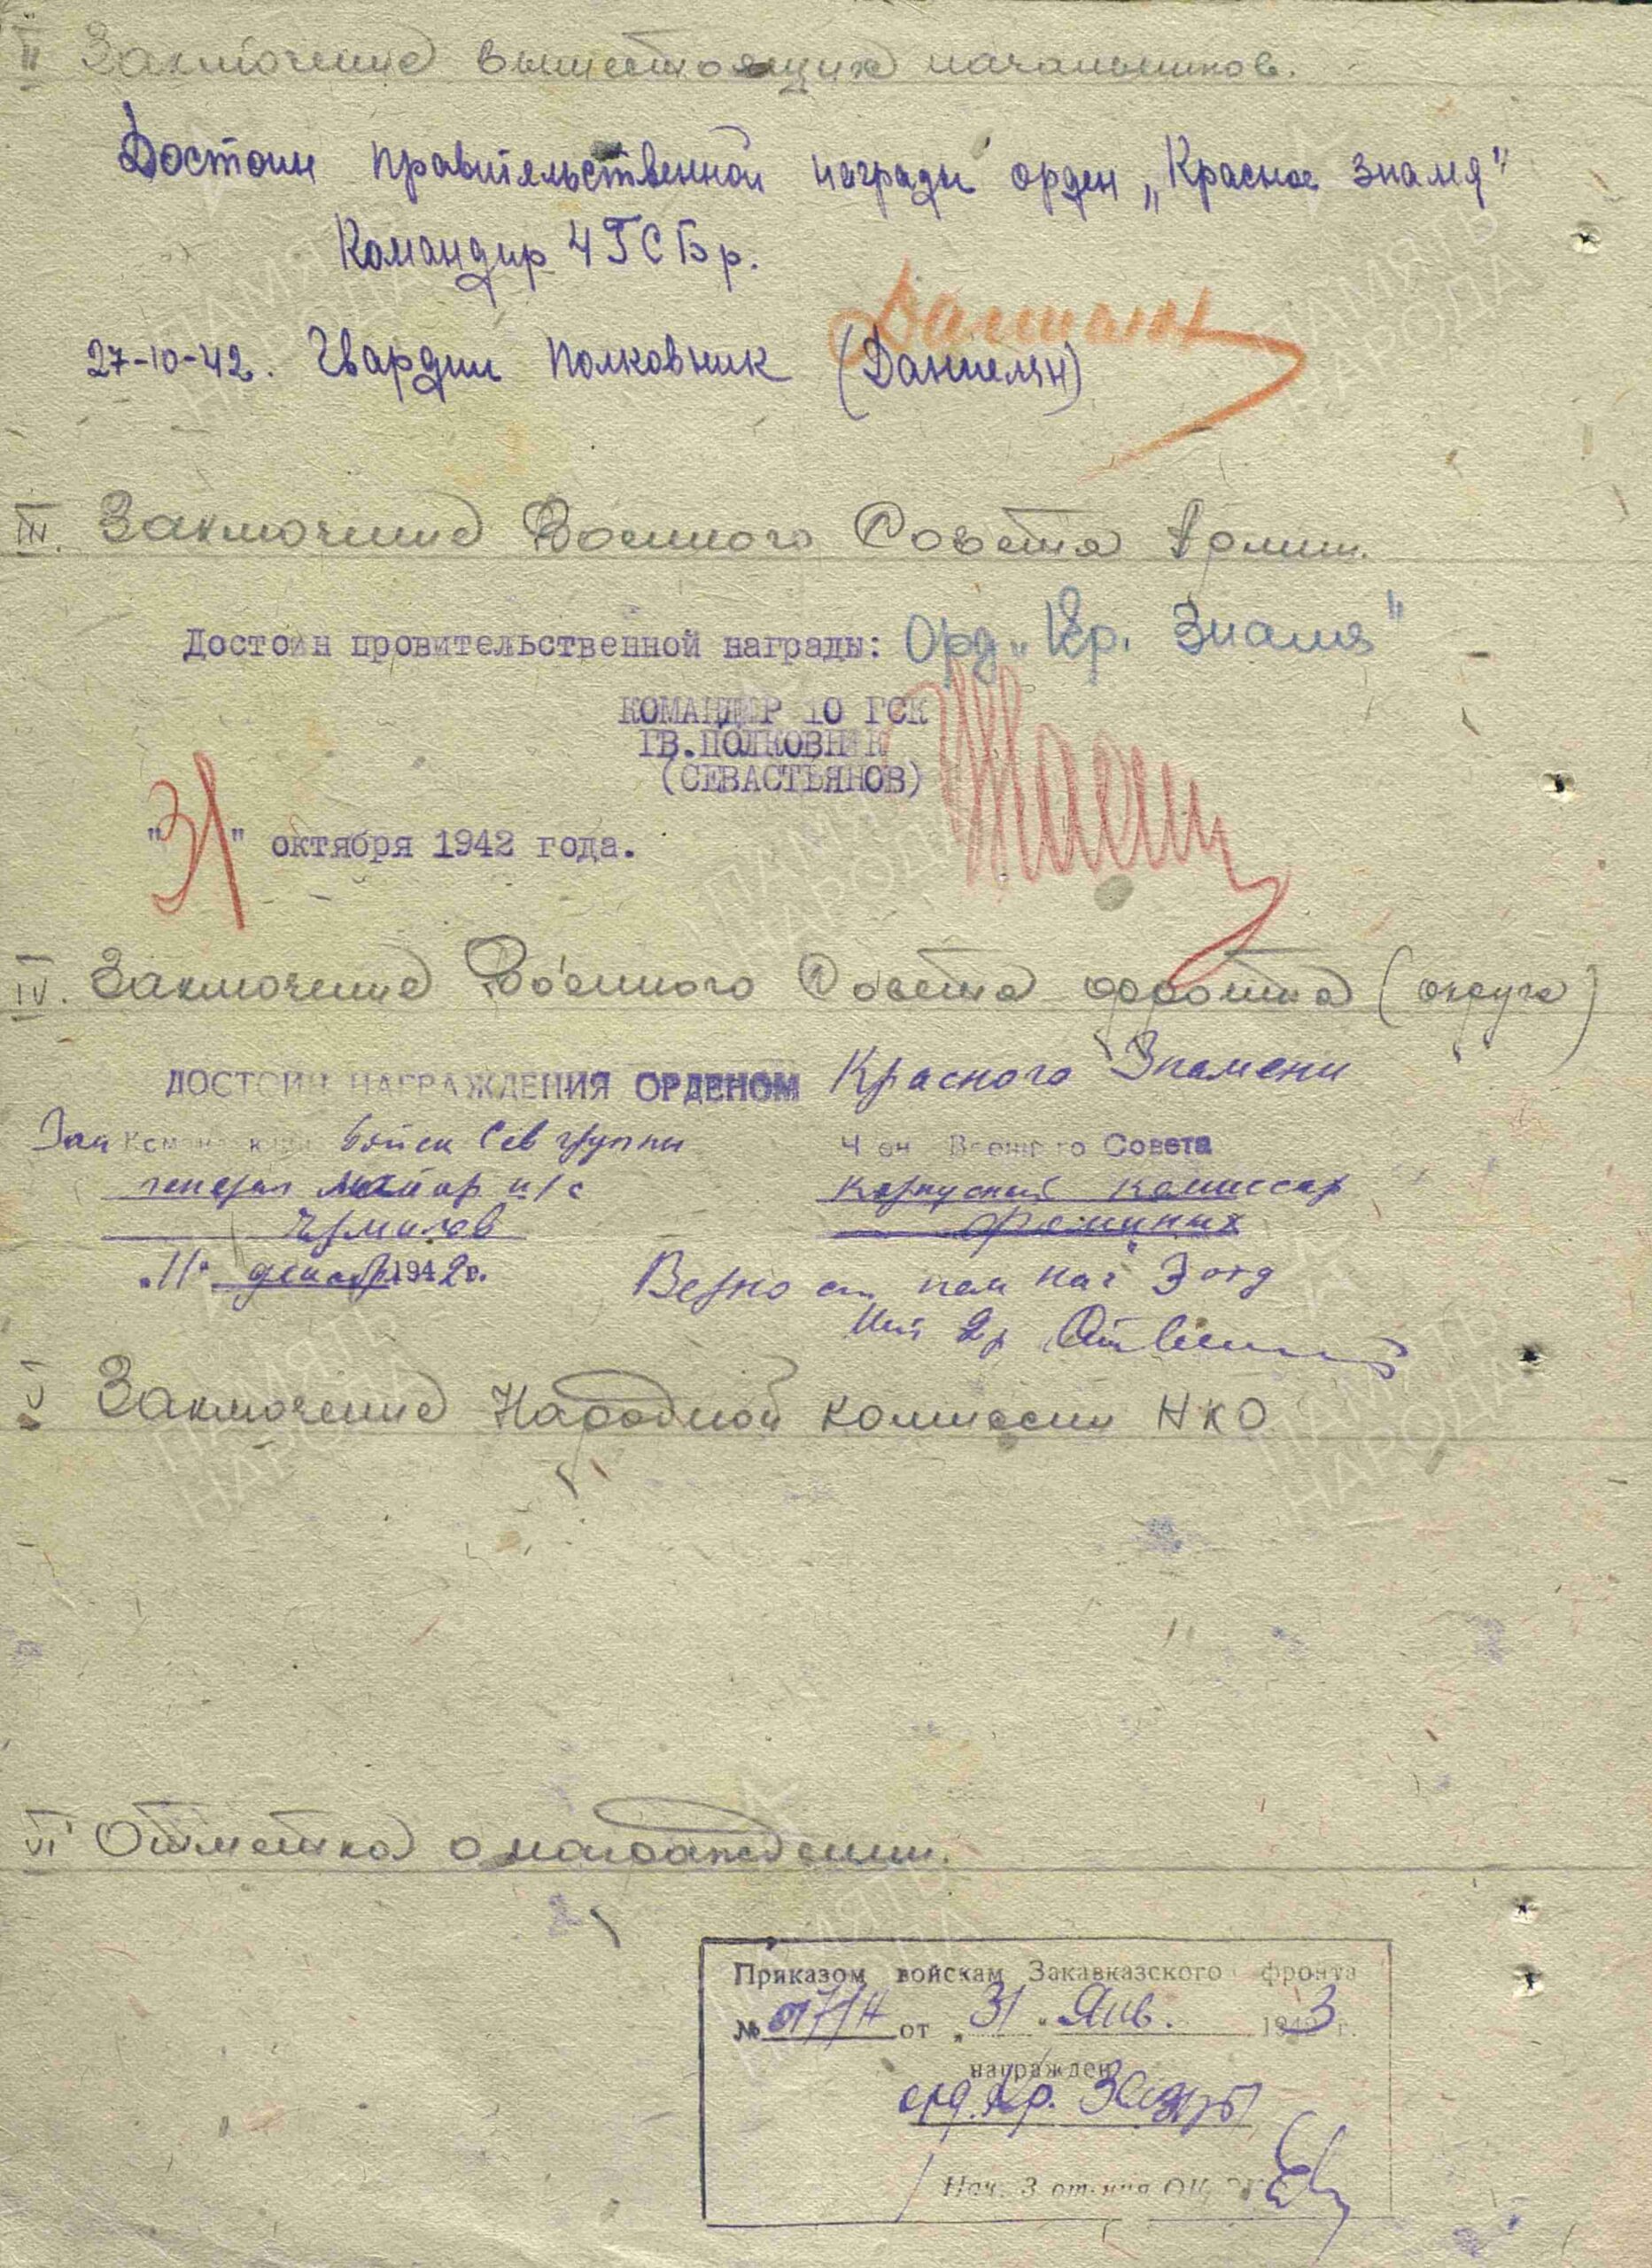 II Заключение вышестоящих начальников.
Достоин правительственной награды орден „Красное знамя"
Командир 4 ГСБр.
27-10-42. Гвардии полковник (Даниелян)
III. Заключение Военного Совета Армии.
Достоин провительственной награды: Орд. „Кр. Знамя"
КОМАНДИР 10 ГСК
ГВ.ПОЛКОВНИК
(СЕВАСТЬЯНОВ)
"31" октября 1942 года.
IV. Заключение Военного Совета фронта (округа)
ДОСТОИН НАГРАЖДЕНИЯ ОРДЕНОМ Красного Знамени
Зам войск Сев группы Член Военного Совета
генерал майор и/с корпусный комиссар
Ермилов Фоминых
„11" декабр 1942 г.
Верно ст. пом нач 3 отд
V Заключение Народной комиссии НКО
VI Отметка о награждении.
Приказом войскам Закавказского фронта
№ 071/Н от „31" Янв. 1943 г.
награжден
орд. Кр. Звезды
Нач. 3 от-ния ОК
ПАМЯТЬ
НАРОДА